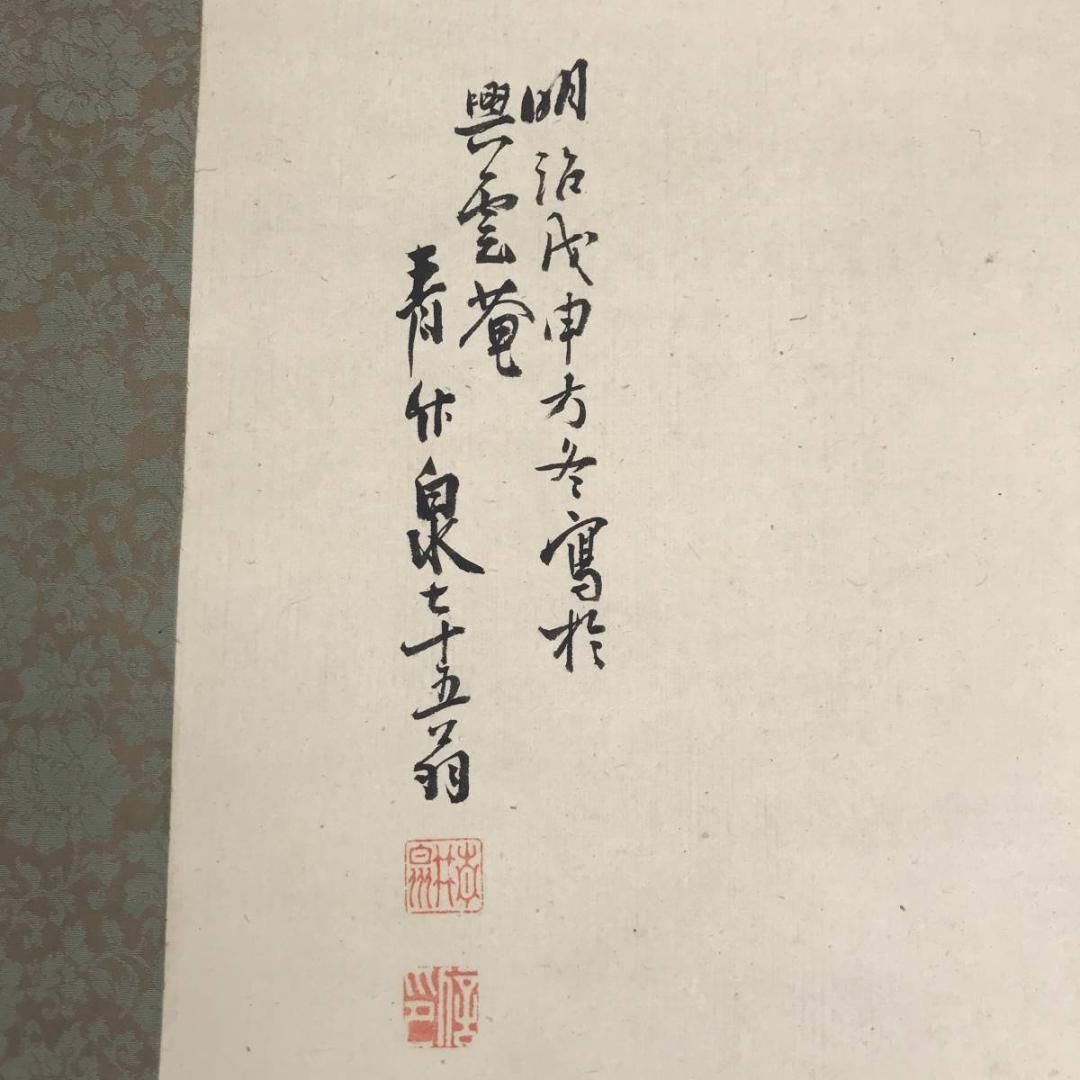 明治戊申方冬寫於
興雲菴
青竹泉七十五翁